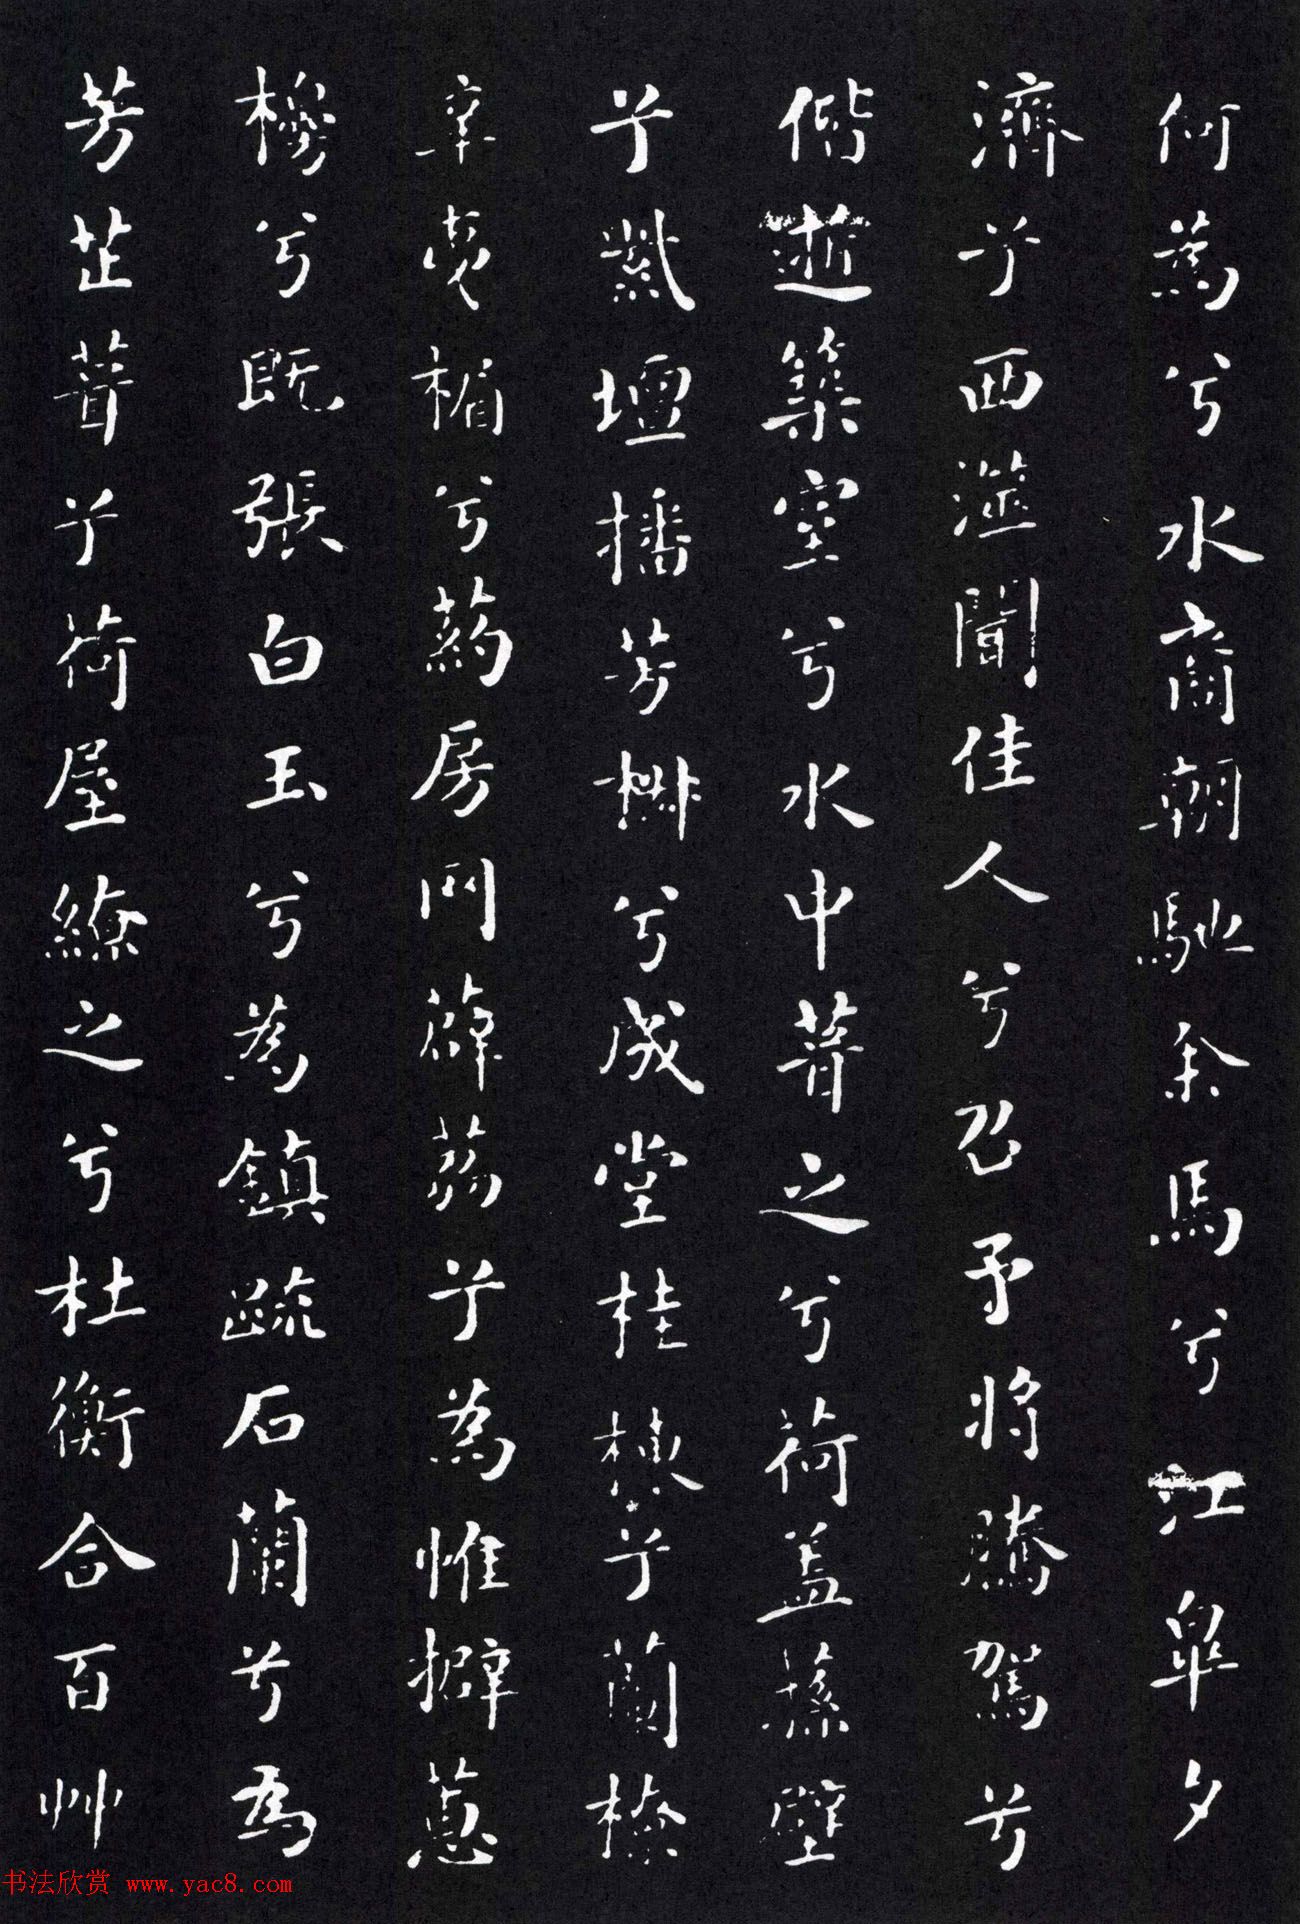 何為兮水裔朝馳余馬兮江皋夕
濟兮西澨聞佳人兮召予將騰駕兮
偕逝築室兮水中葺之兮荷蓋蓀壁
兮紫壇播芳椒兮成堂桂棟兮蘭橑
辛夷楣兮葯房罔薜荔兮為帷擗蕙
櫋兮既張白玉兮為鎮疏石蘭兮為
芳芷葺兮荷屋繚之兮杜衡合百艸
书法欣赏 www.yac8.com